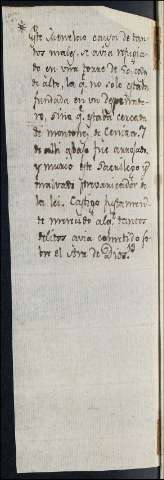 * Este Menelao causa de tan-
tos males. se avia refugiado
en una torre de 50. codos
de alto, la q. no solo estaba
fundada en un despeñade-
ro, sino q. estaba cercada
de montones de Ceniza. Y
de alli abajo fue arrojado,
y murio este Sacrilego y
malvado prevaricador de
la lei. Castigo justamen-
te merecido a los tantos
delitos avia cometido so-
bre el Ara de Dios.